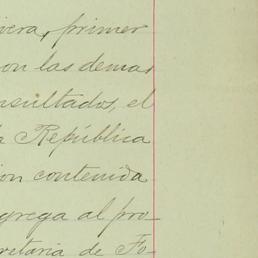 vera, primer
on las demas
nsultados, el
a República
ion contenida
grega al pro-
retaria de Fo-